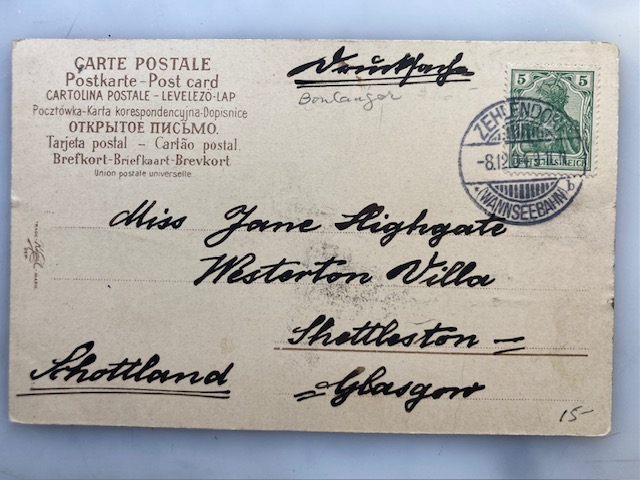 CARTE POSTALE
Postkarte - Post card
CARTOLINA POSTALE - LEVELEZŐ-LAP
Pocztówka-Karta korespondencyjna-Dopisnice
ОТКРЫТОЕ ПИСЬМО.
Tarjeta postal - Cartão postal.
Brefkort-Briefkaart-Brevkort
Union postale universelle.
Drucksache
Boulanger
5 5
DEUTSCHES REICH
ZEHLENDORF
-8.12.
(WANNSEEBAHN) b
TRADE MARK
Miss Jane Highgate
Westerton Villa
Shettleston -
Glasgow
Schottland
15-